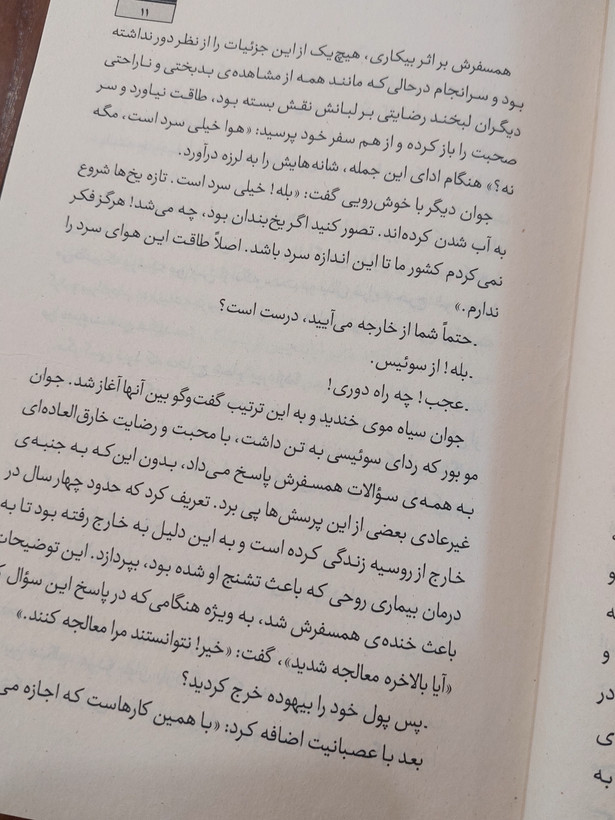 ۱۱
همسفرش بر اثر بیکاری، هیچ‌یک از این جزئیات را از نظر دور نداشته
بود و سرانجام درحالی‌که مانند همه از مشاهده‌ی بدبختی و ناراحتی
دیگران لبخند رضایتی بر لبانش نقش بسته بود، طاقت نیاورد و سر
صحبت را باز کرده و از هم سفر خود پرسید: «هوا خیلی سرد است، مگه
نه؟» هنگام ادای این جمله، شانه‌هایش را به لرزه درآورد.
جوان دیگر با خوش‌رویی گفت: «بله! خیلی سرد است. تازه یخ‌ها شروع
به آب شدن کرده‌اند. تصور کنید اگر یخ‌بندان بود، چه می‌شد! هرگز فکر
نمی‌کردم کشور ما تا این اندازه سرد باشد. اصلاً طاقت این هوای سرد را
ندارم.»
.حتماً شما از خارجه می‌آیید، درست است؟
.بله! از سوئیس.
.عجب! چه راه دوری!
جوان سیاه موی خندید و به این ترتیب گفت‌وگو بین آنها آغاز شد. جوان
مو بور که ردای سوئیسی به تن داشت، با محبت و رضایت خارق‌العاده‌ای
به همه‌ی سؤالات همسفرش پاسخ می‌داد، بدون این‌که به جنبه‌ی
غیرعادی بعضی از این پرسش‌ها پی برد. تعریف کرد که حدود چهار سال در
خارج از روسیه زندگی کرده است و به این دلیل به خارج رفته بود تا به
درمان بیماری روحی که باعث تشنج او شده بود، بپردازد. این توضیحات
باعث خنده‌ی همسفرش شد، به ویژه هنگامی‌که در پاسخ این سؤال
«آیا بالاخره معالجه شدید»، گفت: «خیر! نتوانستند مرا معالجه کنند.»
.پس پول خود را بیهوده خرج کردید؟
بعد با عصبانیت اضافه کرد: «با همین کارهاست که اجازه می
و
ه
و
در
ی
به